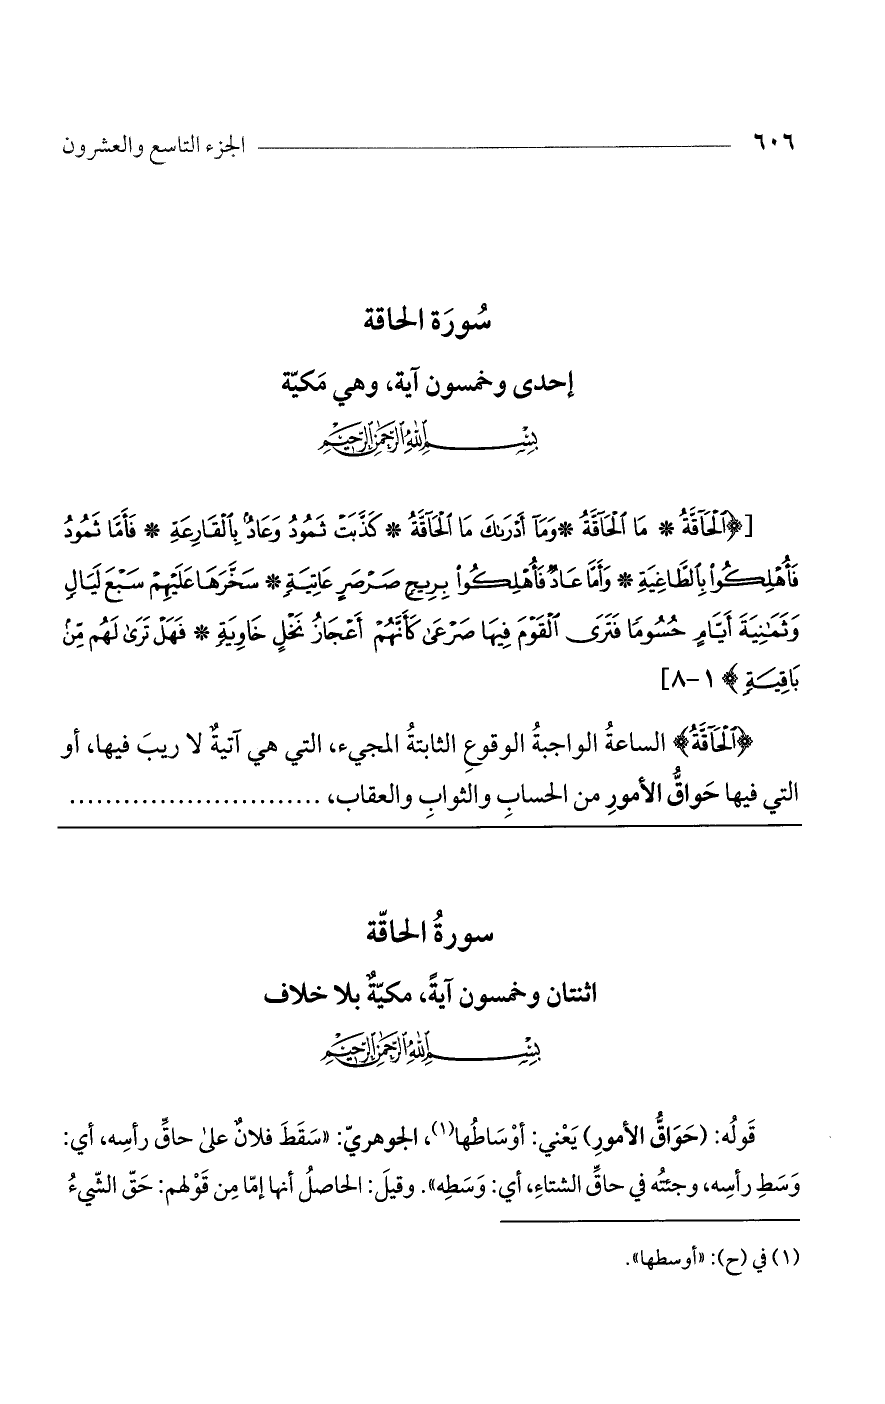 ٦٠٦ الجزء التاسع والعشرون
سُورَة الحاقة
إحدى وخمسون آية، وهي مَكيّة
بِسْمِ اللَّهِ الرَّحْمَنِ الرَّحِيمِ
[﴿ٱلْحَآقَّةُ * مَا ٱلْحَآقَّةُ *وَمَآ أَدْرَىٰكَ مَا ٱلْحَآقَّةُ * كَذَّبَتْ ثَمُودُ وَعَادٌۢ بِٱلْقَارِعَةِ * فَأَمَّا ثَمُودُ
فَأُهْلِكُواْ بِٱلطَّاغِيَةِ * وَأَمَّا عَادٌ فَأُهْلِكُواْ بِرِيحٍ صَرْصَرٍ عَاتِيَةٍ * سَخَّرَهَا عَلَيْهِمْ سَبْعَ لَيَالٍ
وَثَمَٰنِيَةَ أَيَّامٍ حُسُومًا فَتَرَى ٱلْقَوْمَ فِيهَا صَرْعَىٰ كَأَنَّهُمْ أَعْجَازُ نَخْلٍ خَاوِيَةٍ * فَهَلْ تَرَىٰ لَهُم مِّنۢ
بَاقِيَةٍ﴾ ١-٨]
﴿ٱلْحَآقَّةُ﴾ الساعةُ الواجبةُ الوقوعِ الثابتةُ المجيء، التي هي آتيةٌ لا ريبَ فيها، أو
التي فيها حَواقُّ الأمورِ من الحسابِ والثوابِ والعقاب، ............................
سورةُ الحاقّة
اثنتان وخمسون آيةً، مكيّةٌ بلا خلاف
بِسْمِ اللَّهِ الرَّحْمَنِ الرَّحِيمِ
قَولُه: (حَوَاقُّ الأمورِ) يَعْني: أوْسَاطُها(١)، الجوهريّ: «سَقَطَ فلانٌ علىٰ حاقِّ رأسِه، أي:
وَسَطِ رأسِه، وجئتُه في حاقِّ الشتاءِ، أي: وَسَطِه». وقيلَ: الحاصلُ أنها إمّا مِن قَوْلهم: حَقّ الشّيءُ
(١) في (ح): «أوسطها».